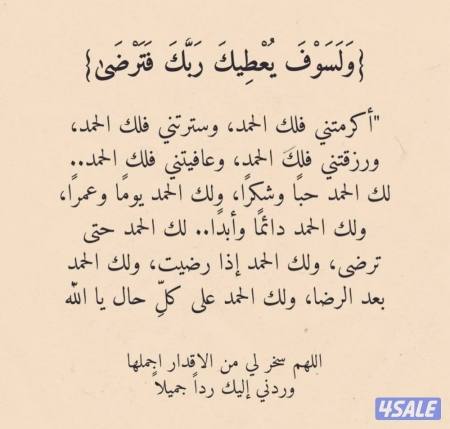 {وَلَسَوْفَ يُعْطِيكَ رَبُّكَ فَتَرْضَىٰ}
"أكرمتني فلك الحمد، وسترتني فلك الحمد،
ورزقتني فلكَ الحمد، وعافيتني فلك الحمد..
لك الحمد حبًا وشكرًا، ولك الحمد يومًا وعمرًا،
ولك الحمد دائمًا وأبدًا.. لك الحمد حتى
ترضى، ولك الحمد إذا رضيت، ولك الحمد
بعد الرضا، ولك الحمد على كلِّ حال يا الله
اللهم سخر لي من الاقدار اجملها
وردني إليك رداً جميلاً
4SALE